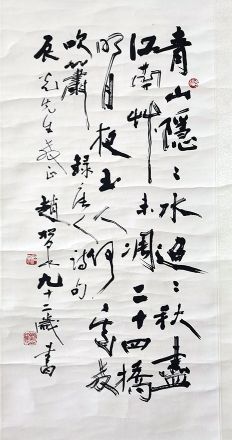 青山隱〻水迢〻秋盡
江南艸未凋二十四橋
明月夜玉人何處教
吹簫 錄唐人詩句
先生教正 趙 九十二歲書